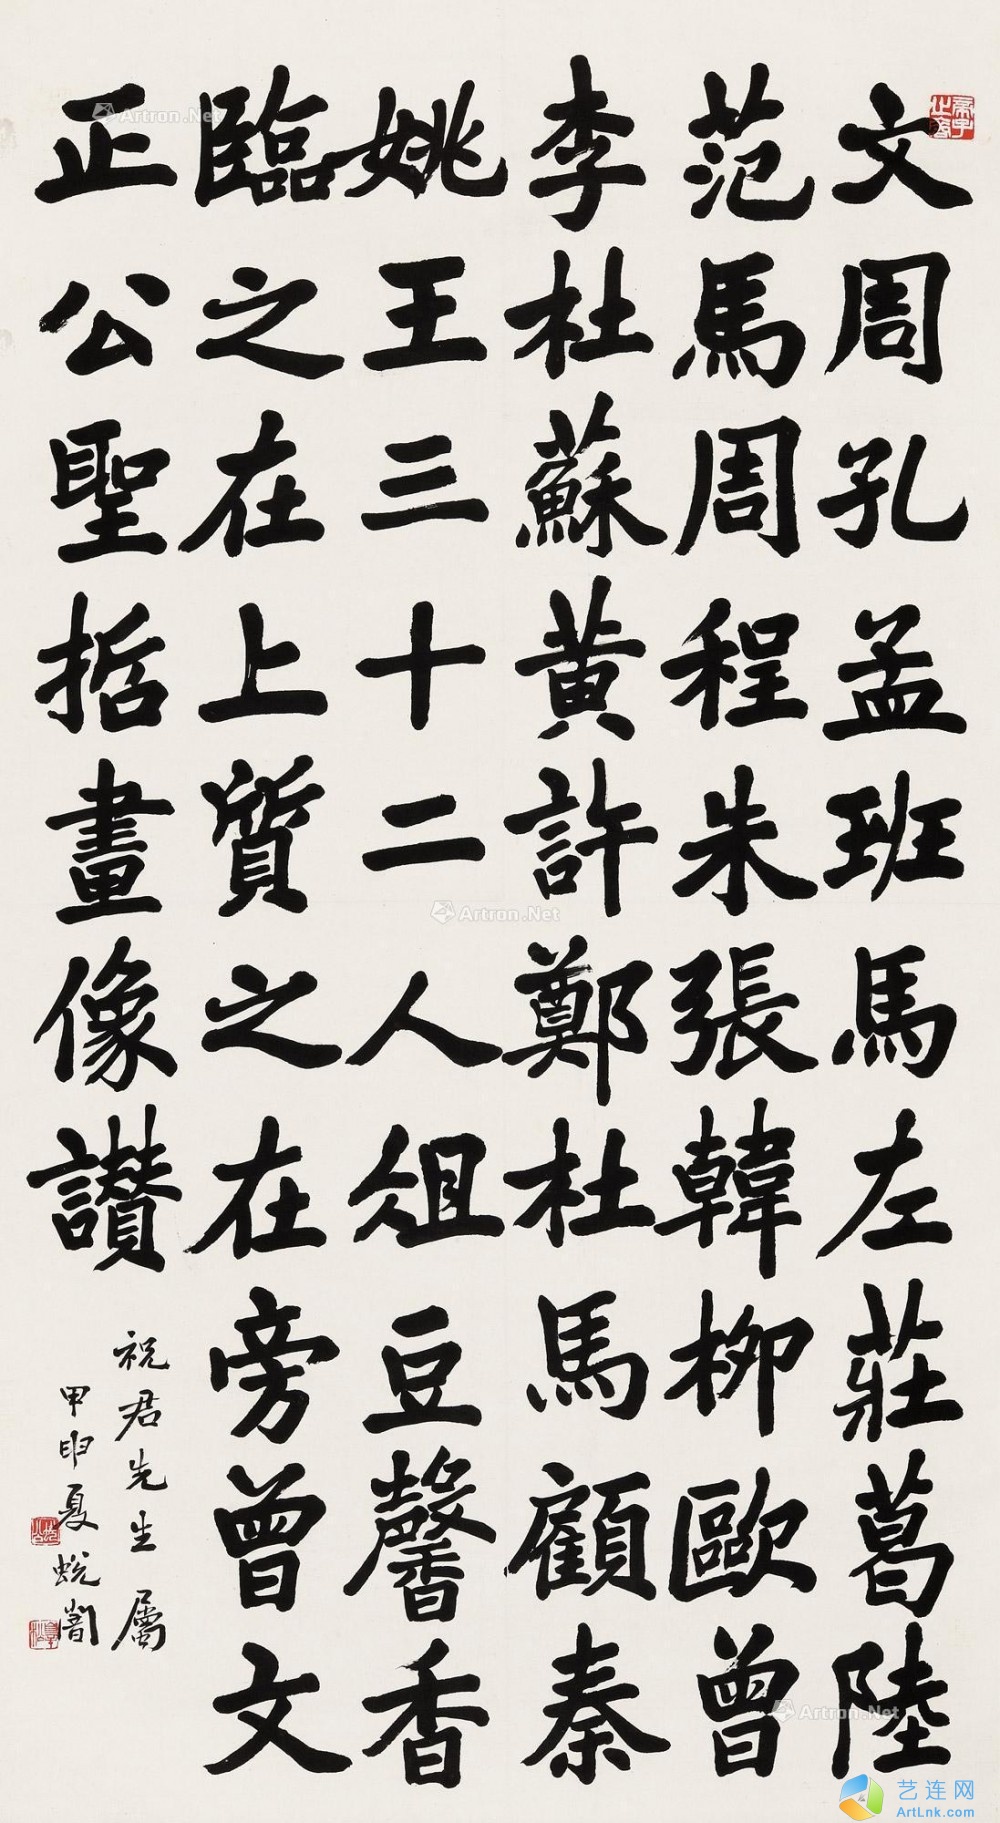 文周孔孟班馬左莊葛陸
范馬周程朱張韓柳歐曾
李杜蘇黃許鄭杜馬顧秦
姚王三十二人俎豆馨香
臨之在上質之在旁曾文
正公聖哲畫像讚
祝君先生屬
甲申夏蛻闇
Artron.Net
Artron.Net
Artron.Net
Artron.Net
艺连网
ArtLnk.com